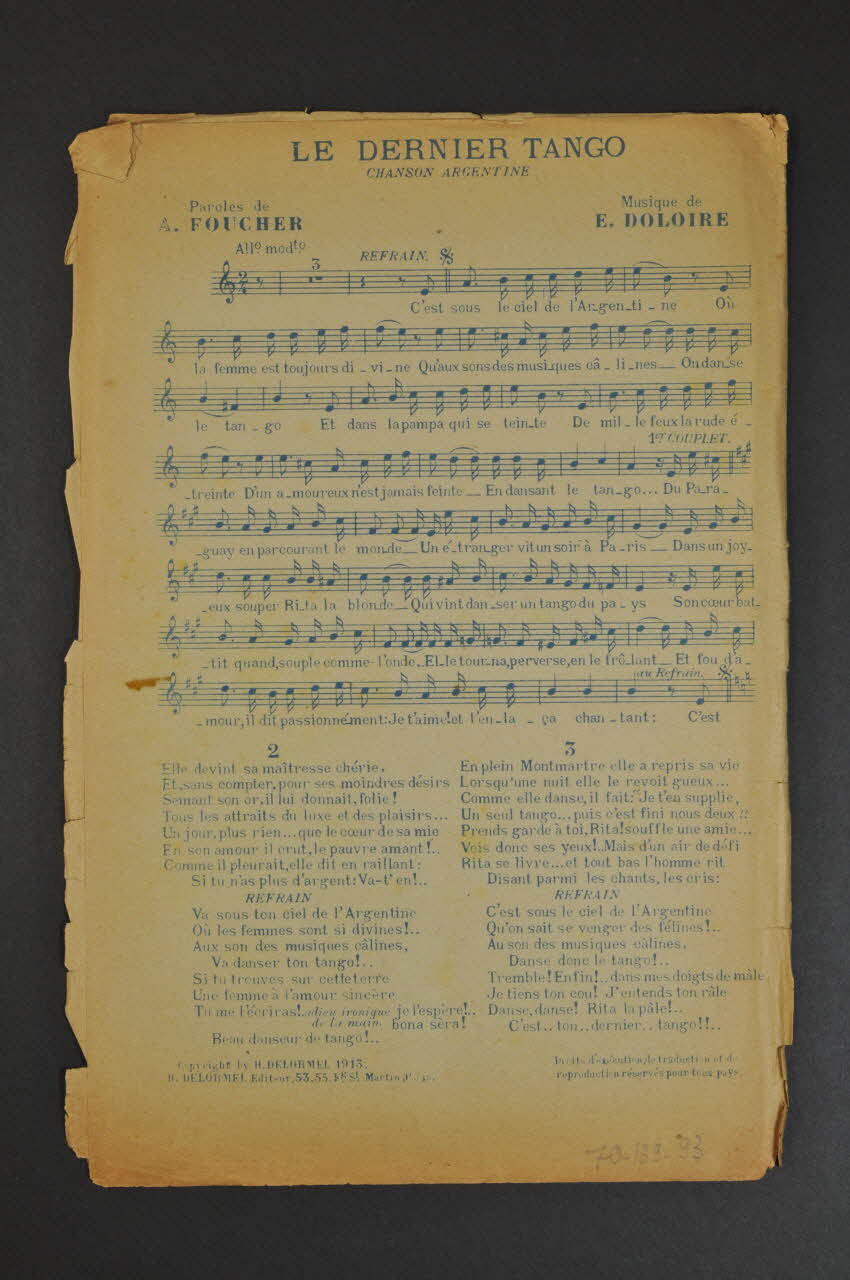 LE DERNIER TANGO
CHANSON ARGENTINE
Paroles de
A. FOUCHER
Musique de
E. DOLOIRE
All° mod.to
3
REFRAIN.
C'est sous le ciel de l'Ar_gen_ti _ ne Où
la femme est toujours di _ vi _ ne Qu'aux sons des musi_ques câ _ li_nes__ On dan_se
le tan _ go Et dans la pampa qui se tein_te De mil _ le feux la rude é _
1er COUPLET.
_treinte D'un a_moureux n'est jamais feinte__ En dansant le tan_go... Du Pa_ra _
_guay en parcourant le mon_de__ Un é_tran_ger vit un soir à Pa_ris__ Dans un joy_
_eux souper Ri_ta la blon_de__ Qui vint dan_ser un tango du pa_ys Son cœur bat_
_tit quand, souple comme l'onde_ El_le tour_na, perverse, en le frô_lant__ Et fou d'a_
au Refrain.
_mour, il dit passionné_ment: Je t'aime! et l'en_la _ ça chan _ tant: C'est
2
Elle devint sa maîtresse chérie,
Et, sans compter, pour ses moindres désirs
Semant son or, il lui donnait, folie!
Tous les attraits du luxe et des plaisirs...
Un jour, plus rien... que le cœur de sa mie
En son amour il crut, le pauvre amant!..
Comme il pleurait, elle dit en raillant:
Si tu n'as plus d'argent: Va-t'en!..
REFRAIN
Va sous ton ciel de l'Argentine
Où les femmes sont si divines!..
Aux son des musiques câlines,
Va danser ton tango!..
Si tu trouves sur cette terre
Une femme à l'amour sincère
Tu me l'écriras!.. adieu ironique je l'espère!..
de la main bona sèra!
Beau danseur de tango!..
3
En plein Montmartre elle a repris sa vie
Lorsqu'une nuit elle le revoit gueux...
Comme elle danse, il fait: "Je t'en supplie,
Un seul tango... puis c'est fini nous deux"!!
Prends garde à toi, Rita! souffle une amie...
Vois donc ses yeux!.. Mais d'un air de défi
Rita se livre... et tout bas l'homme rit
Disant parmi les chants, les cris:
REFRAIN
C'est sous le ciel de l'Argentine
Qu'on sait se venger des félines!..
Au son des musiques câlines,
Danse donc le tango!..
Tremble! Enfin!.. dans mes doigts de mâle
Je tiens ton cou! J'entends ton râle
Danse, danse! Rita la pâle!..
C'est.. ton.. dernier.. tango!!..
Copyright by H. DELORMEL 1913.
H. DELORMEL Editeur, 53, 55, Fg St Martin, Paris.
Droits d'exécution, de traduction et de
reproduction réservés pour tous pays.
70-139-93